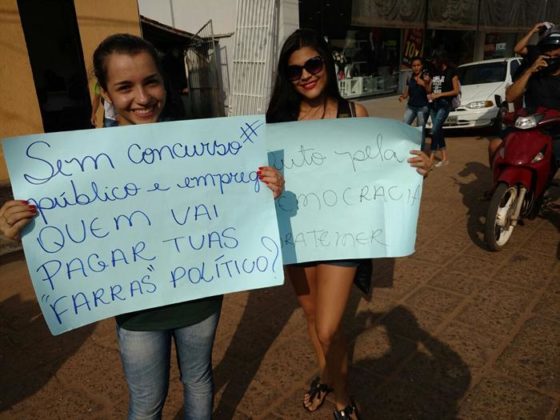 Sem concurso #
público e empreg
QUEM VAI
PAGAR TUAS
"FARRAS" POLÍTICO?
pela
EMOCRACIA
RATEMER